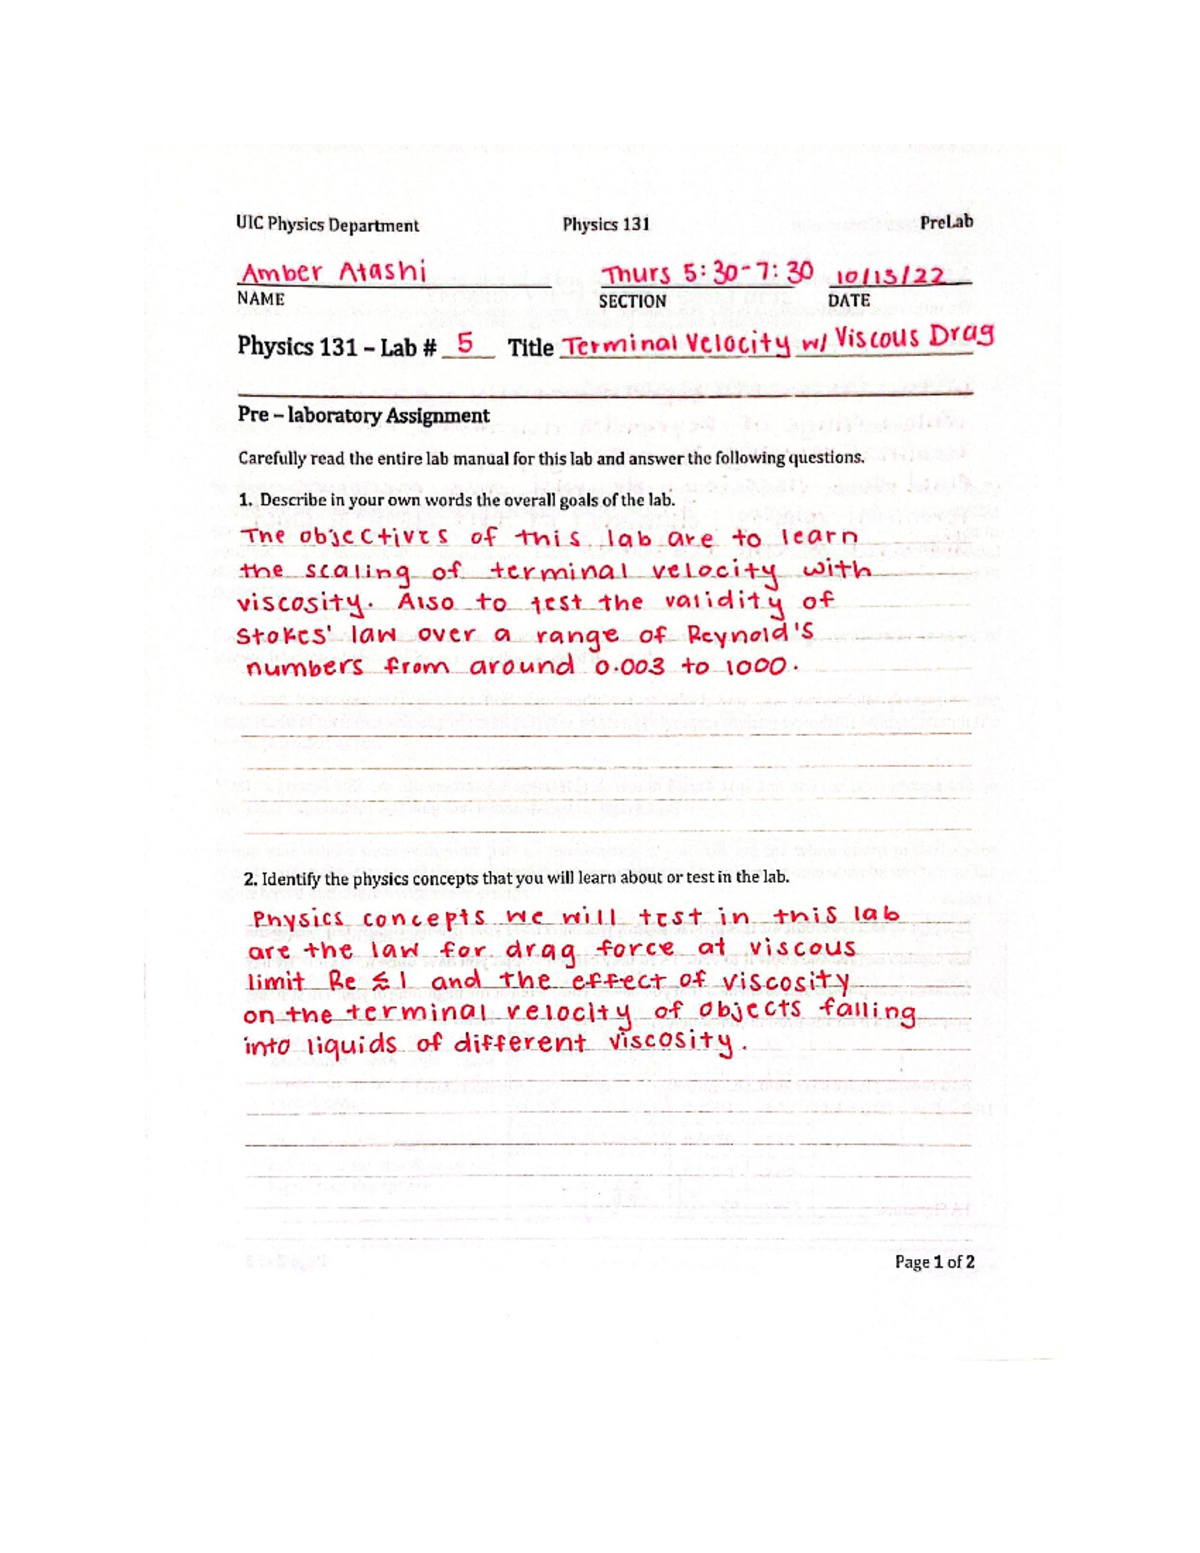 UIC Physics Department Physics 131 PreLab
Amber Atashi Thurs 5:30-7:30 10/13/22
NAME SECTION DATE
Physics 131 – Lab # 5 Title Terminal Velocity w/ Viscous Drag
Pre – laboratory Assignment
Carefully read the entire lab manual for this lab and answer the following questions.
1. Describe in your own words the overall goals of the lab.
The objectives of this lab are to learn
the scaling of terminal velocity with
viscosity. Also to test the validity of
Stokes' law over a range of Reynold's
numbers from around 0.003 to 1000.
2. Identify the physics concepts that you will learn about or test in the lab.
Physics concepts we will test in this lab
are the law for drag force at viscous
limit Re ≲ 1 and the effect of viscosity
on the terminal velocity of objects falling
into liquids of different viscosity.
Page 1 of 2